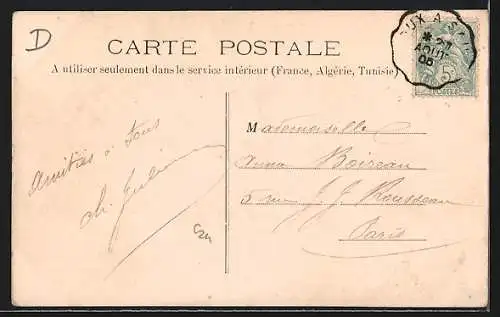 D
CARTE POSTALE
A utiliser seulement dans le service intérieur (France, Algérie, Tunisie)
AOUT
05
5
Amitiés à tous
Ch. Julienne
Mademoiselle
Anna Boireau
5 rue J. J. Rousseau
Paris